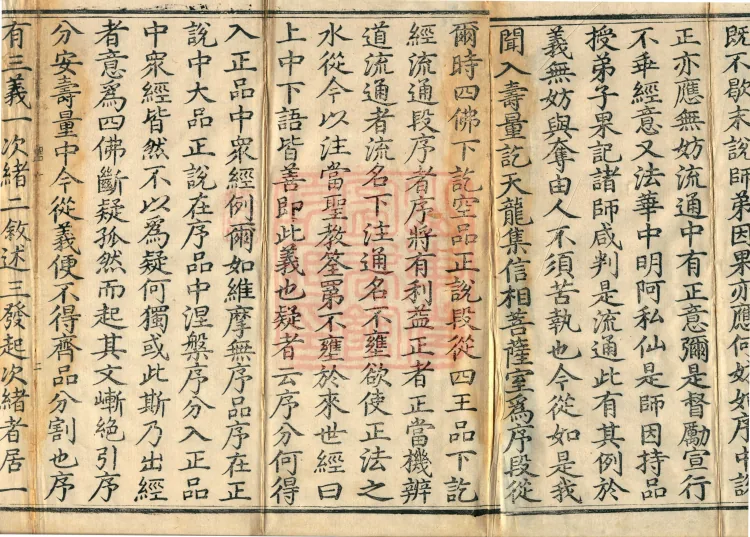 既不歇末說師弟因果亦應何妨如序中說
正亦應無妨流通中有正意彌是督勵宣行
不乖經意又法華中明阿私仙是師因持品
授弟子果記諸師咸判是流通此有其例於
義無妨與奪由人不須苦執也今從如是我
聞入壽量訖天龍集信相菩薩室爲序段從
爾時四佛下訖空品正說段從四王品下訖
經流通段序者序將有利益正者正當機辨
道流通者流名下注通名不壅欲使正法之
水從今以注當聖教筌罤不壅於來世經曰
上中下語皆善即此義也疑者云序分何得
入正品中衆經例爾如維摩無序品序在正
說中大品正說在序品中涅槃序分入正品
中衆經皆然不以爲疑何獨或此斯乃出經
者意爲四佛斷疑孤然而起其文嶃絕引序
分安壽量中今從義便不得齊品分割也序
有三義一次緒二敘述三發起次緒者居一